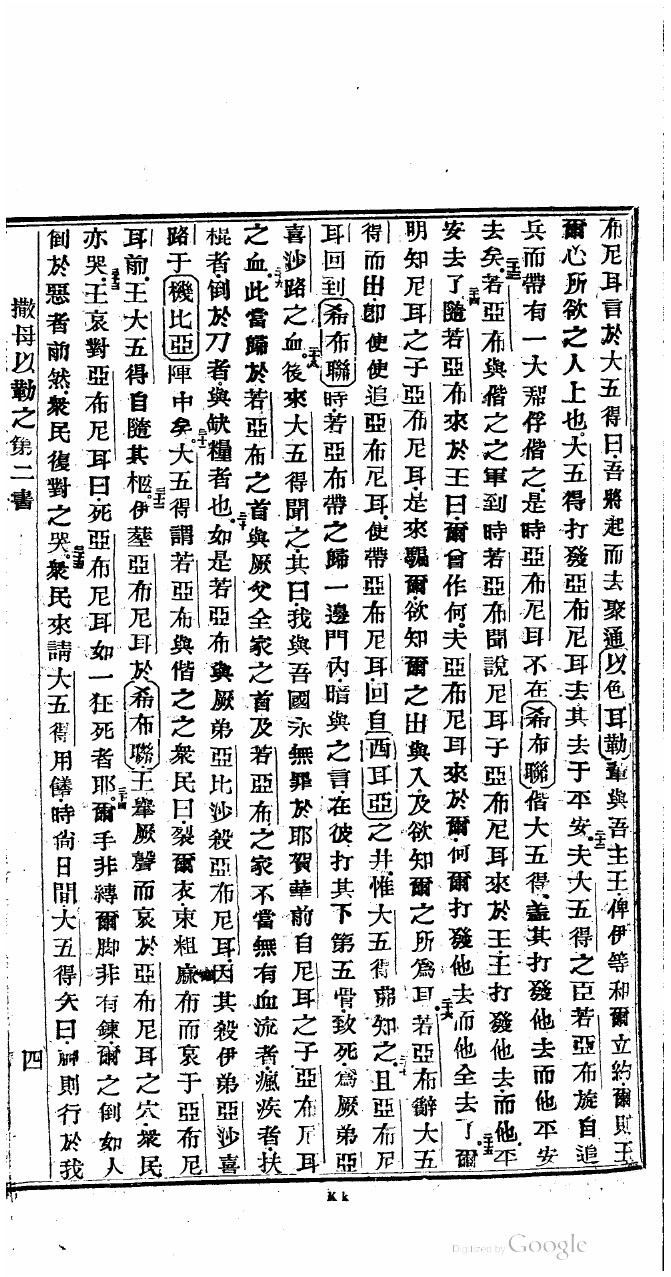 布尼耳言於大五得曰吾將起而去聚通以色耳勒輩與吾主王俾伊等和爾立約爾則王
爾心所欲之人上也大五得打發亞布尼耳去其去于平安二十二夫大五得之臣若亞布旋自追
兵而帶有一大掠俘偕之是時亞布尼耳不在希布聯偕大五得蓋其打發他去而他平安
去矣二十三若亞布與偕之之軍到時若亞布聞說尼耳子亞布尼耳來於王王打發他去而他平
安去了二十四隨若亞布來於王曰爾曾作何夫亞布尼耳來於爾何爾打發他去而他全去了二十五爾
明知尼耳之子亞布尼耳是來騙爾欲知爾之出與入及欲知爾之所為耳二十六若亞布辭大五
得而出即使使追亞布尼耳使帶亞布尼耳回自西耳亞之井惟大五得弗知之二十七且亞布尼
耳回到希布聯時若亞布帶之歸一邊門內暗與之言在彼打其下第五骨致死為厥弟亞
喜沙路之血二十八後來大五得聞之其曰我與吾國永無罪於耶賀華前自尼耳之子亞布尼耳
之血二十九此當歸於若亞布之首與厥父全家之首及若亞布之家不當無有血流者瘋疾者扶
棍者倒於刀者與缺糧者也三十如是若亞布與厥弟亞比沙殺亞布尼耳因其殺伊弟亞沙喜
路于機比亞陣中矣三十一大五得謂若亞布與偕之之衆民曰裂爾衣束粗麻布而哀于亞布尼
耳前王大五得自隨其柩三十二伊塟亞布尼耳於希布聯王舉厥聲而哀於亞布尼耳之穴衆民
亦哭三十三王哀對亞布尼耳曰死亞布尼耳如一狂死者耶三十四爾手非縛爾脚非有鍊爾之倒如人
倒於惡者前然衆民復對之哭三十五衆民來請大五得用饍時尚日間大五得矢曰神則行於我
撒母以勒之第二書
四
Kk
Digitized by Google